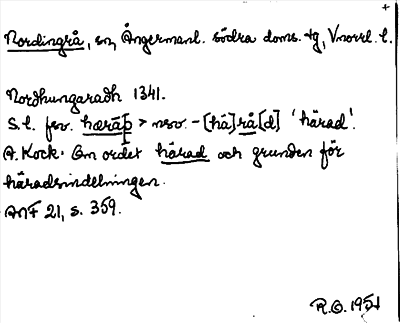 +
Nordingrå, sn, Ångermanl. södra doms. tg, Vnorrl. l.
Nordhungaradh 1341.
S. l. fsv. hæraþ > nsv. -[hä]rå[d] 'härad'.
A. Kock. Om ordet härad och grunden för
häradsindelningen.
ANF 21, s. 359.
R.O. 1951